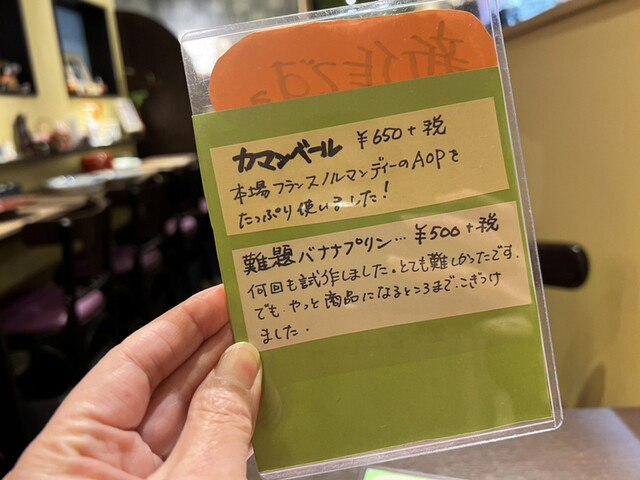 新作です。
カマンベール ¥650+税
本場フランスノルマンディーのAOPを
たっぷり使いました!
難題バナナプリン… ¥500+税
何回も試作しました。とても難しかったです。
でも、やっと商品になるところまで、こぎつけ
ました.